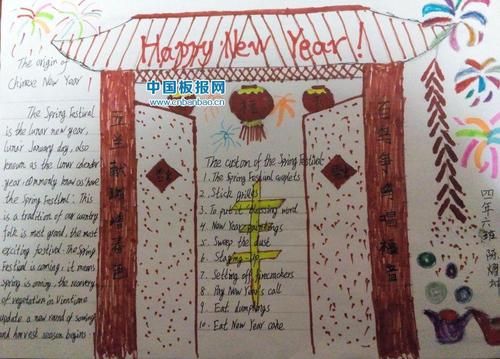 Happy New Year!
中国板报网
www.cnbanbao.cn
The origin of
Chinese New Year!
The Spring Festival
is the lunar new year,
lunar January day, also
known as the lunar calendar
year, commonly know as have
the Spring Festival. This
is a tradition of our country
folk is most grand, the most
exciting festival. The Spring
Festival is coming, it means
spring is coming, the recovery
of vegetation in Vientiane
update a new round of sowing
and harvest season begins.
The custom of the Spring Festival
1. The Spring Festival couplets
2. Stick grilles
3. To put it blessing word
4. New Year paintings
5. Sweep the dust
6. Staying-up
7. Setting off firecrackers
8. Pay New Year's call
9. Eat dumplings
10. Eat New Year cake
百鸟争鸣唱福音
四年六班